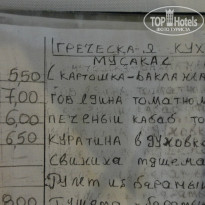 TOP Hotels
ГРЕЧЕСКА-Я КУХ
МУСАКАС
550 (КАРТОШКА-БАКЛАЖА
7,00 ГОВЯДИНА ТОМАТНОМ
6,00 ПЕЧЕНЫЙ КАБАБ ТО
6,50 КУРАТИНА В ДУХОВК
СВИНИНА ТУШЕМА
РУЛЕТ ИЗ БАРАНЬИ